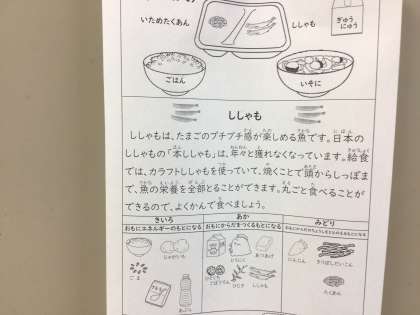 いためたくあん
ししゃも
ぎゅうにゅう
ごはん
いそに
ししゃも
ししゃもは、たまごのプチプチ感が楽しめる魚です。日本の
ししゃもの「本ししゃも」は、年々獲れなくなっています。給食
では、カラフトししゃもを使っていて、焼くことで頭からしっぽま
で、魚の栄養を全部とることができます。丸ごと食べることが
できるので、よくかんで食べましょう。
きいろ
あか
みどり
おもにエネルギーのもとになる
おもにからだをつくるもとになる
おもにからだのちょうしをととのえるもとになる
じゃがいも
ごま
あぶら
とりにく
あつあげ
ひじき
ししゃも
にんじん
きりぼしだいこん
たくあん